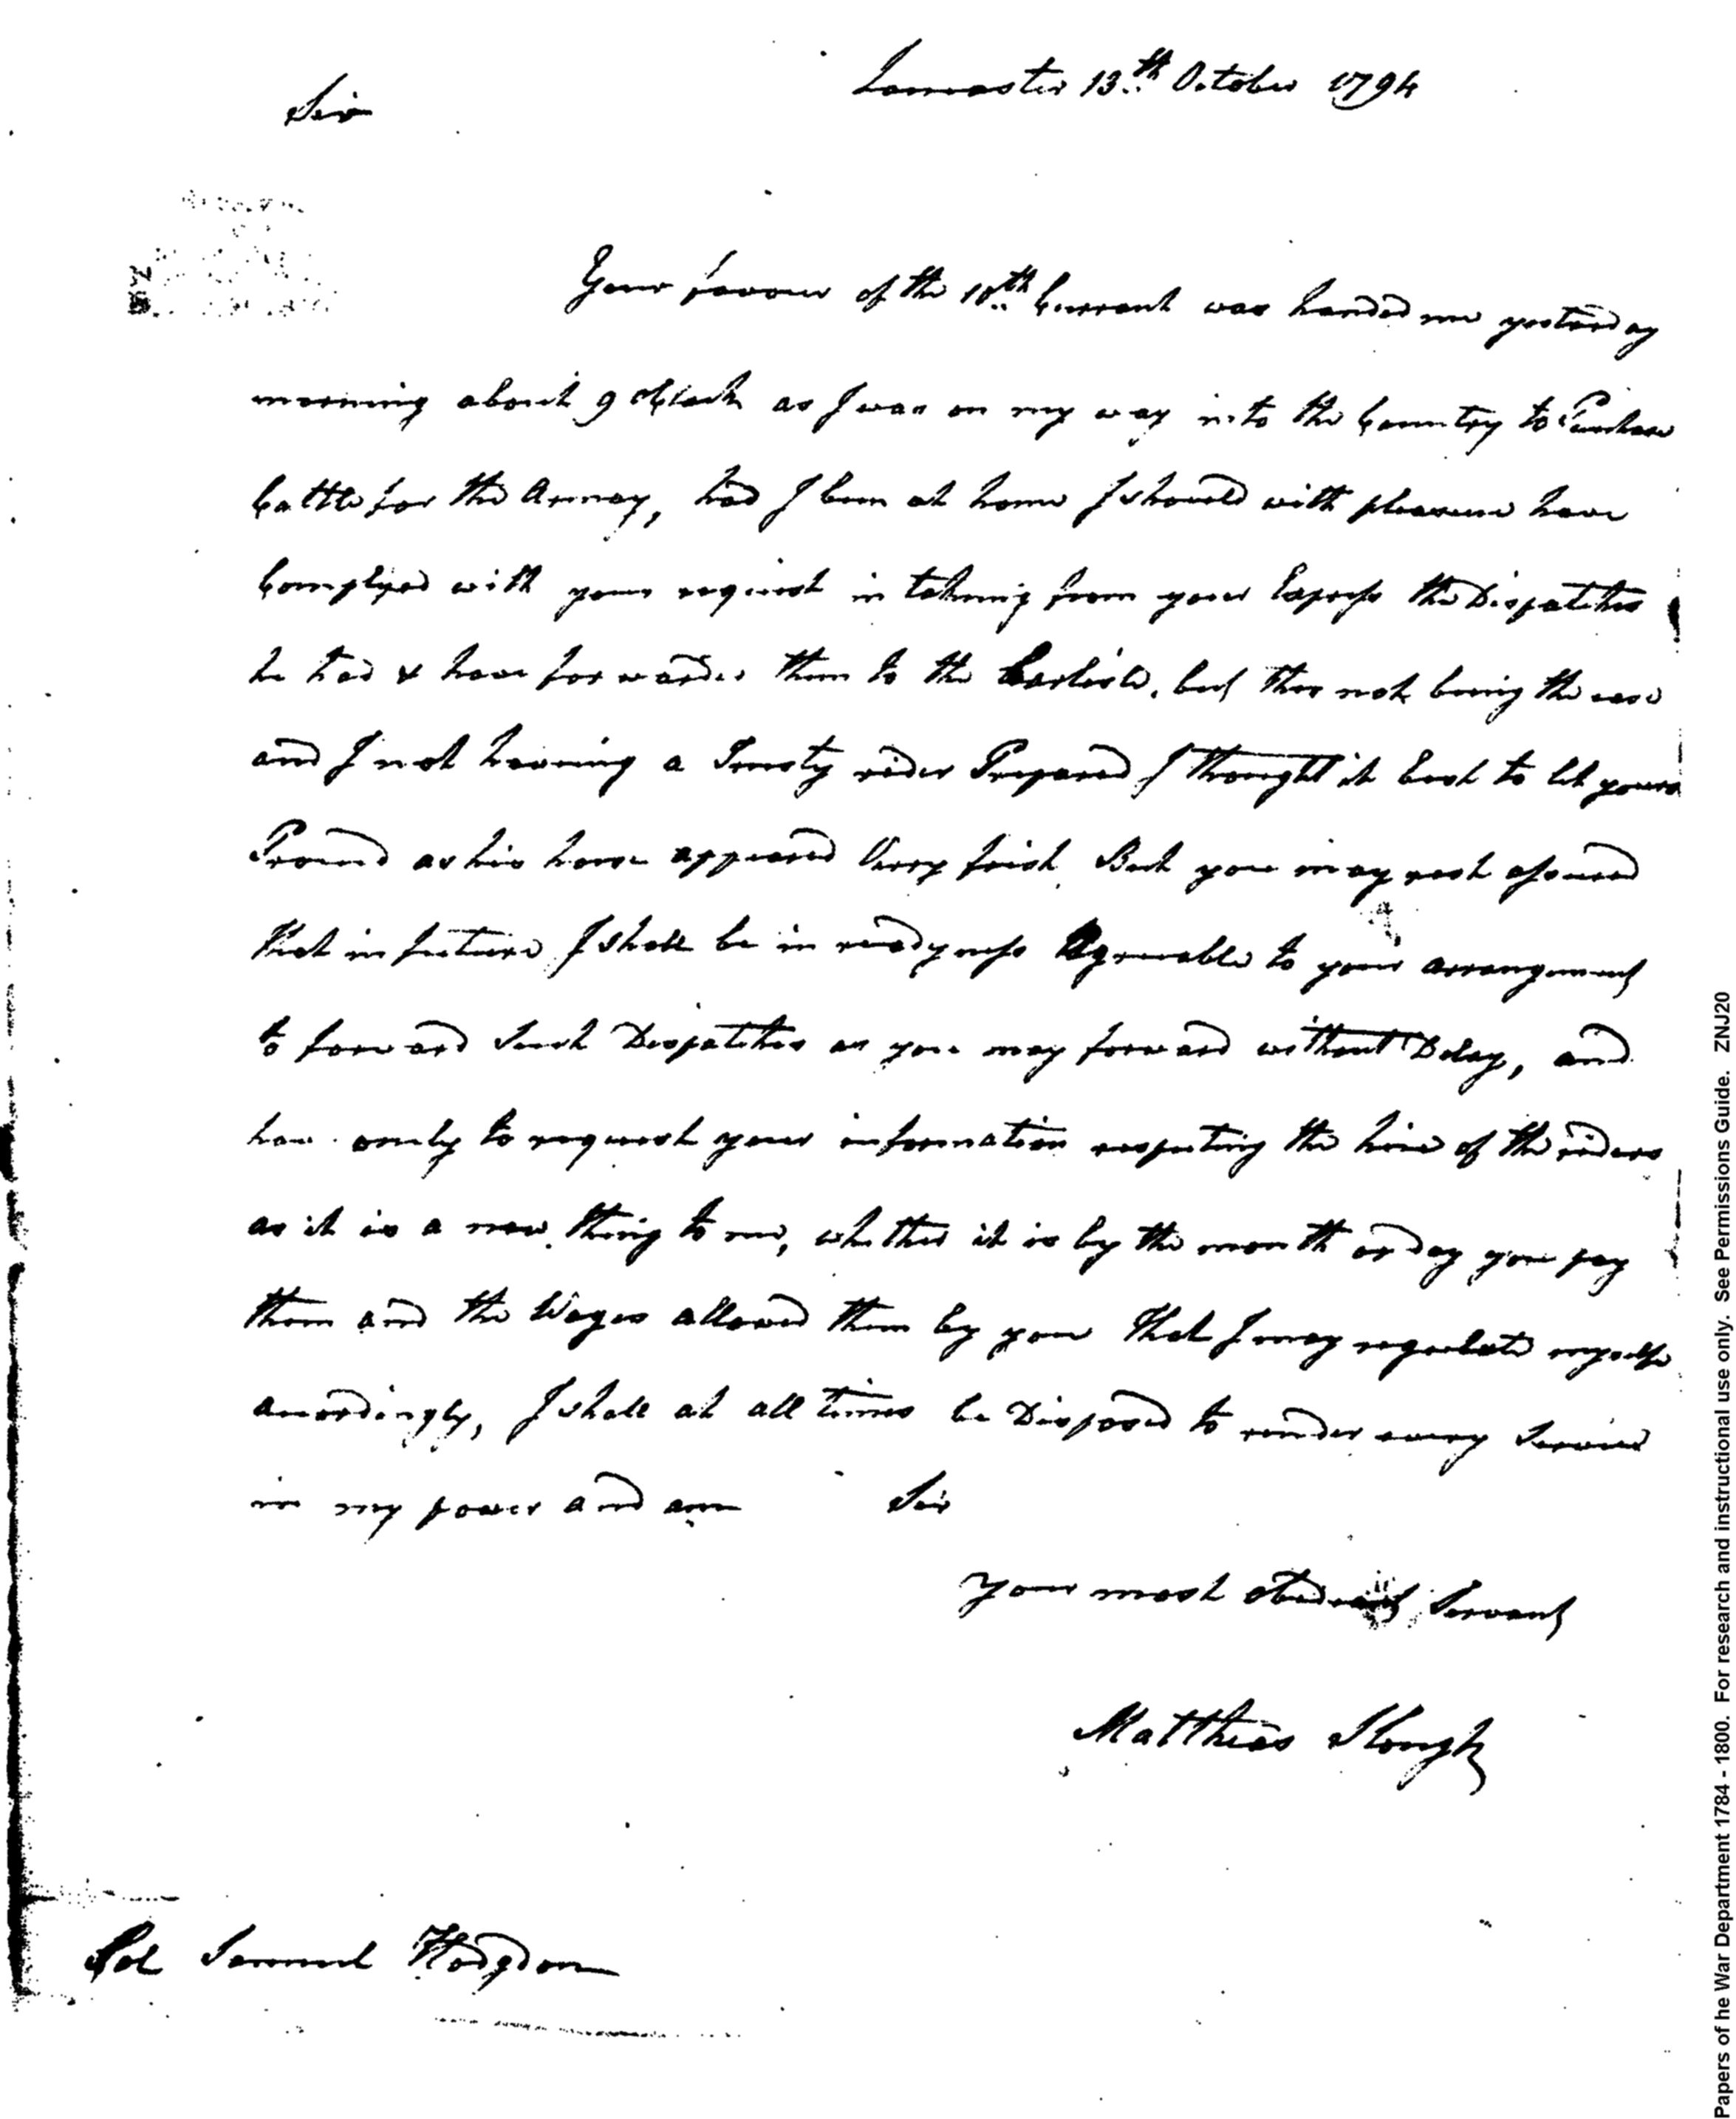 Lancaster 13th October 1794
Sir
Your favour of the 10th Currant was handed me yesterday
morning about 9 oClock as I was on my way into the Country to Purchase
Cattle for the Army, had I been at home I should with pleasure have
Complyed with your request in takeing from your Express the Dispatches
he had & have forwarded them to the Carlisle, but this not being the case
and I not haveing a Trusty rider Prepared I thought it best to let yours
Proceed as his horse appeared Verry frish. But you may rest assured
that in future I shall be in readyness Agreeable to your arrangement
to forward Such Dispatches as you may forward without Delay, and
have only to request your information respecting the hire of the riders
as it is a new thing to me, whether it is by the month or day you pay
them and the Wages allowed them by you That I may regulate myself
accordingly, I shall at all times be Disposed to render every Service
in my power and am Sir
Your most obedient Servant
Matthias Slough
Col Samuel Hodgdon
Papers of he War Department 1784 - 1800. For research and instructional use only. See Permissions Guide. ZNJ20